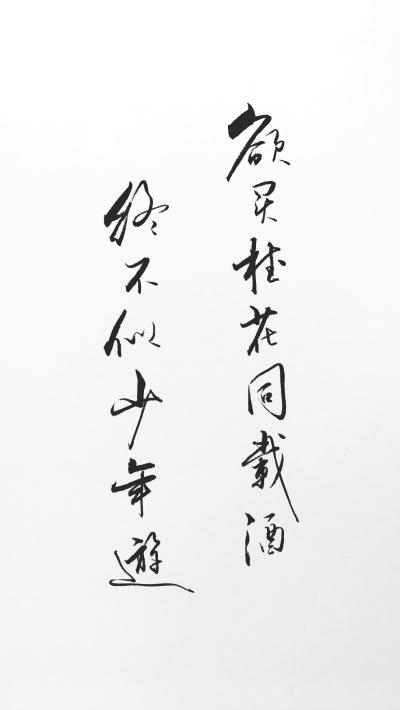 欲买桂花同载酒
终不似少年遊